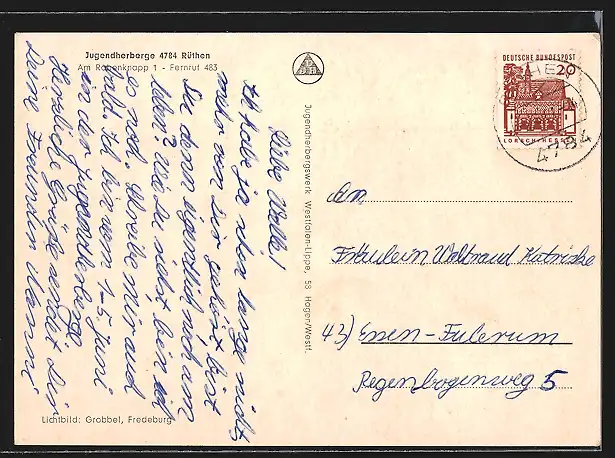 Jugendherberge 4784 Rüthen
Am Rabenknapp 1 - Fernruf 483
Liebe Walli!
Ich habe ja schon lange nichts
mehr von Dir gehört. Bist
Du denn eigentlich noch am
leben? Wie Du siehst bin ich
es noch. Schreibe mir auch
bald. Ich bin vom 1-5. Juni
in der Jugendherberge.
Herzliche Grüße sendet Dir
Deine Freundin Hanni
Lichtbild: Grobbel, Fredeburg
Jugendherbergswerk Westfalen-Lippe, 58 Hagen/Westf.
DEUTSCHE BUNDESPOST
20
LORSCH-HESSEN
4784
An
Fräulein Waltraud
43) Essen-Fulerum
Regenbogenweg 5